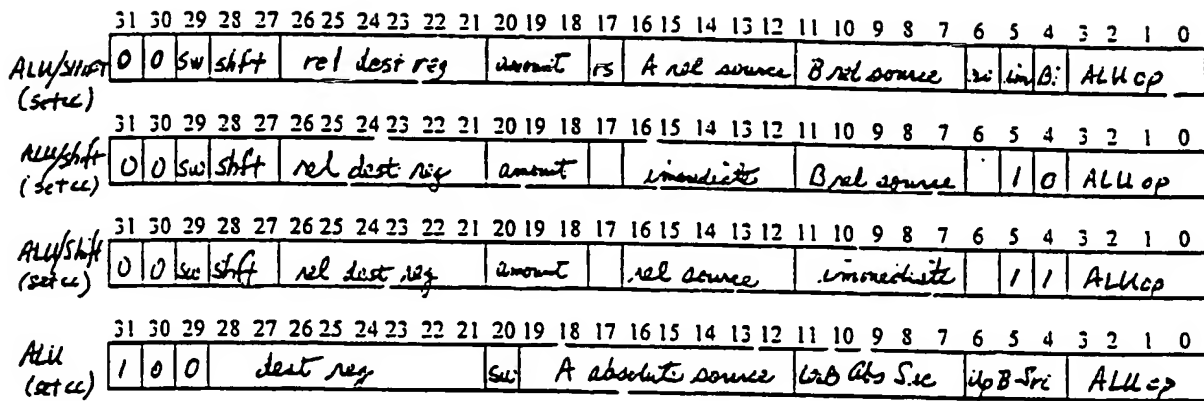 31 30 29 28 27 26 25 24 23 22 21 20 19 18 17 16 15 14 13 12 11 10 9 8 7 6 5 4 3 2 1 0
ALU/Shift 0 0 sw shft rel dest reg amount rs A rel source B rel source im Bi ALU op
(setcc)
31 30 29 28 27 26 25 24 23 22 21 20 19 18 17 16 15 14 13 12 11 10 9 8 7 6 5 4 3 2 1 0
ALU/shft 0 0 sw shft rel dest reg amount immediate B rel source 1 0 ALU op
(setcc)
31 30 29 28 27 26 25 24 23 22 21 20 19 18 17 16 15 14 13 12 11 10 9 8 7 6 5 4 3 2 1 0
ALU/Shift 0 0 sw shft rel dest reg amount rel source immediate 1 1 ALU op
(setcc)
31 30 29 28 27 26 25 24 23 22 21 20 19 18 17 16 15 14 13 12 11 10 9 8 7 6 5 4 3 2 1 0
ALU 1 0 0 dest reg sw A absolute source Abs Src ALU op
(setcc)